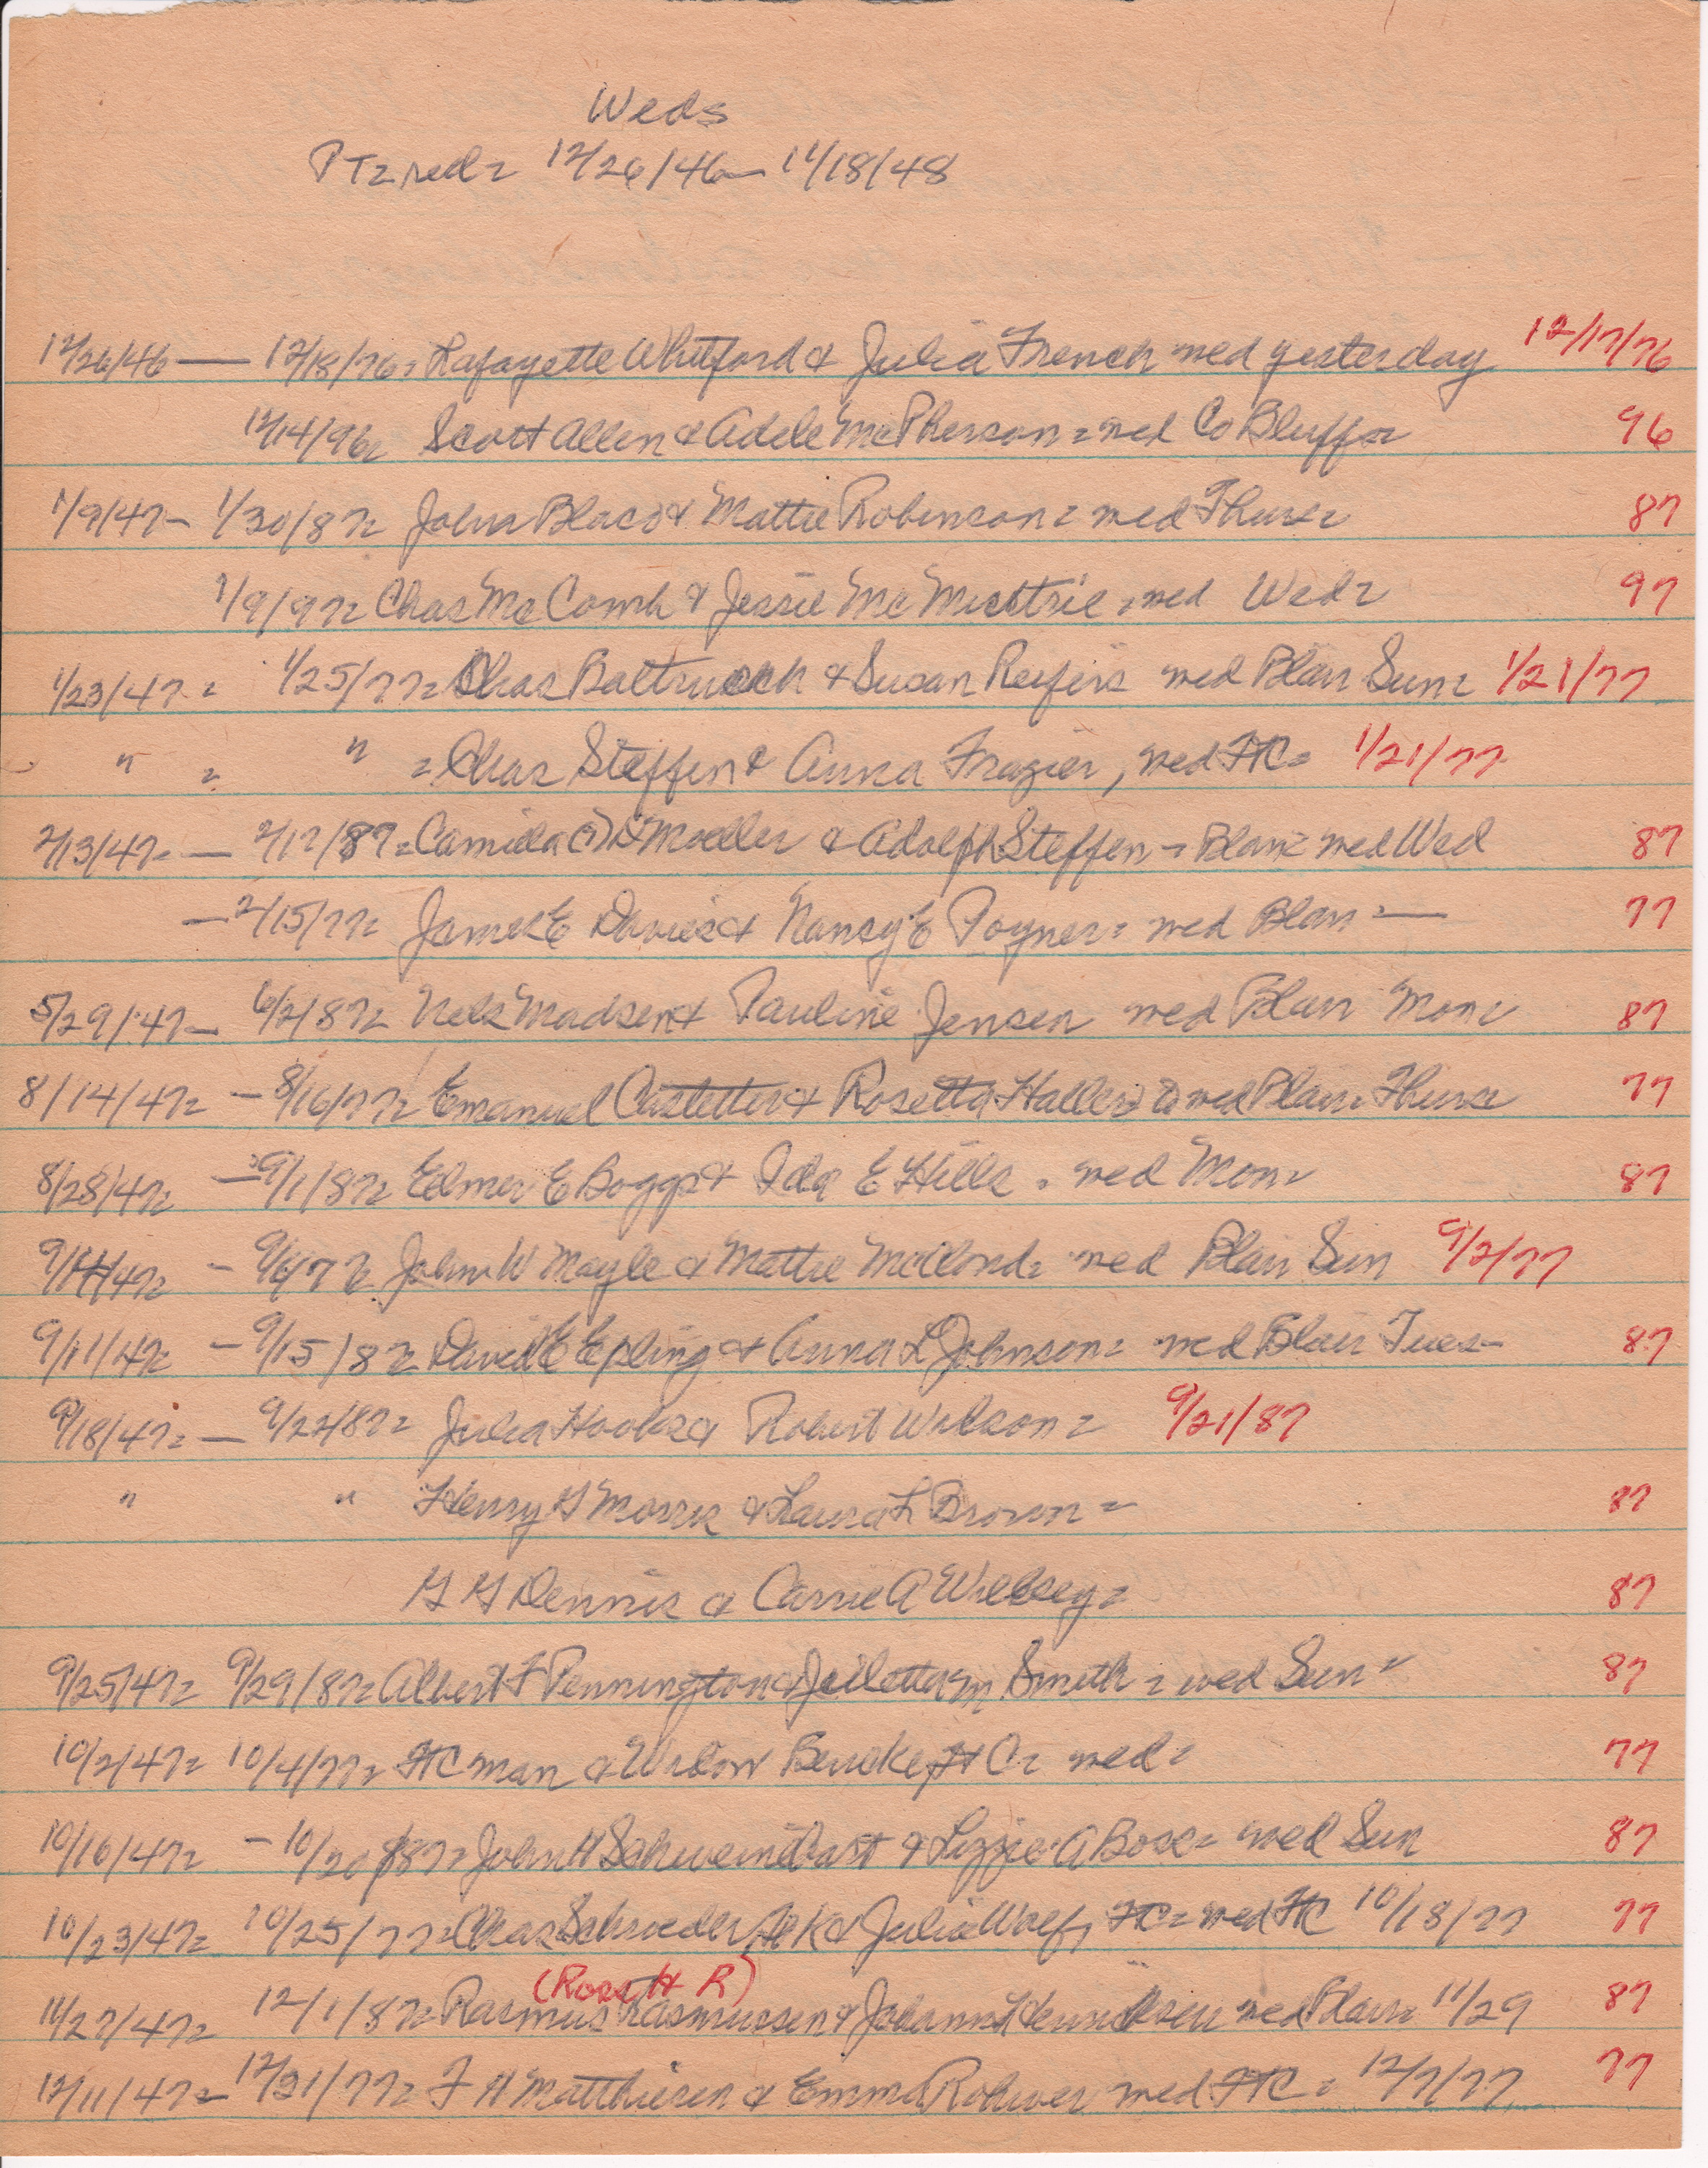 Weds
PT= red= 12/26/46— 11/18/48
12/26/46 — 12/18/76= Lafayette Whitford & Julia French wed yesterday 12/17/76
12/14/96= Scott Allen & Adele McPherson = wed Co Bluffs= 96
1/9/47— 1/30/87= John Blaco & Mattie Robinson= wed Thurs= 87
1/9/97= Chas McComb & Jessie Mc = wed Wed= 97
1/23/47= 1/25/77= Chas & Susan wed Blair Sun= 1/21/77
" = " = Chas Steffen & Anna Frazier, wed FtC= 1/21/77
2/13/47= — 2/17/87= Camilla (?) Moeller & Adolph Steffen = Blair= wed Wed 87
— 2/15/77= James E Davis & Nancy E Poyner= wed Blair =— 77
5/29/47— 6/2/87= Nels Madsen & Pauline Jensen wed Blair Mon= 87
8/14/47= — 8/16/77= Emanuel Castetter & Rosetta Haller= wed Blair= Thurs= 77
8/28/47= — 9/1/87= Elmer E Boggs & Ida E Hills = wed Mon= 87
— John W Mayle & Mattie wed Blair Sun 9/2/77
9/11/47= — 9/15/87= David E Epling & Anna L Johnson= wed Blair Tues— 87
9/18/47= — 9/22/87= Julia Hooks & Robert Wilson= 9/21/87
" " Henry G Morris & Laura L Brown= 87
G G Dennis & Carrie A 87
9/25/47= 9/29/87= Albert F Pennington & M Smith = wed Sun= 87
10/2/47= 10/4/77= FtC man & Widow FtC= wed= 77
10/16/47= — 10/20/87= John H & Lizzie A Bose= wed Sun 87
10/23/47= 10/25/77= Chas Schroeder, & Julia Wolf, FtC= wed FtC 10/18/77 77
(Rose H R)
11/27/47= 12/1/87= Rasmus Rasmussen & wed Blair= 11/29 87
12/11/47= F H Matthiesen & Emma Rohwer wed FtC= 12/7/77 77